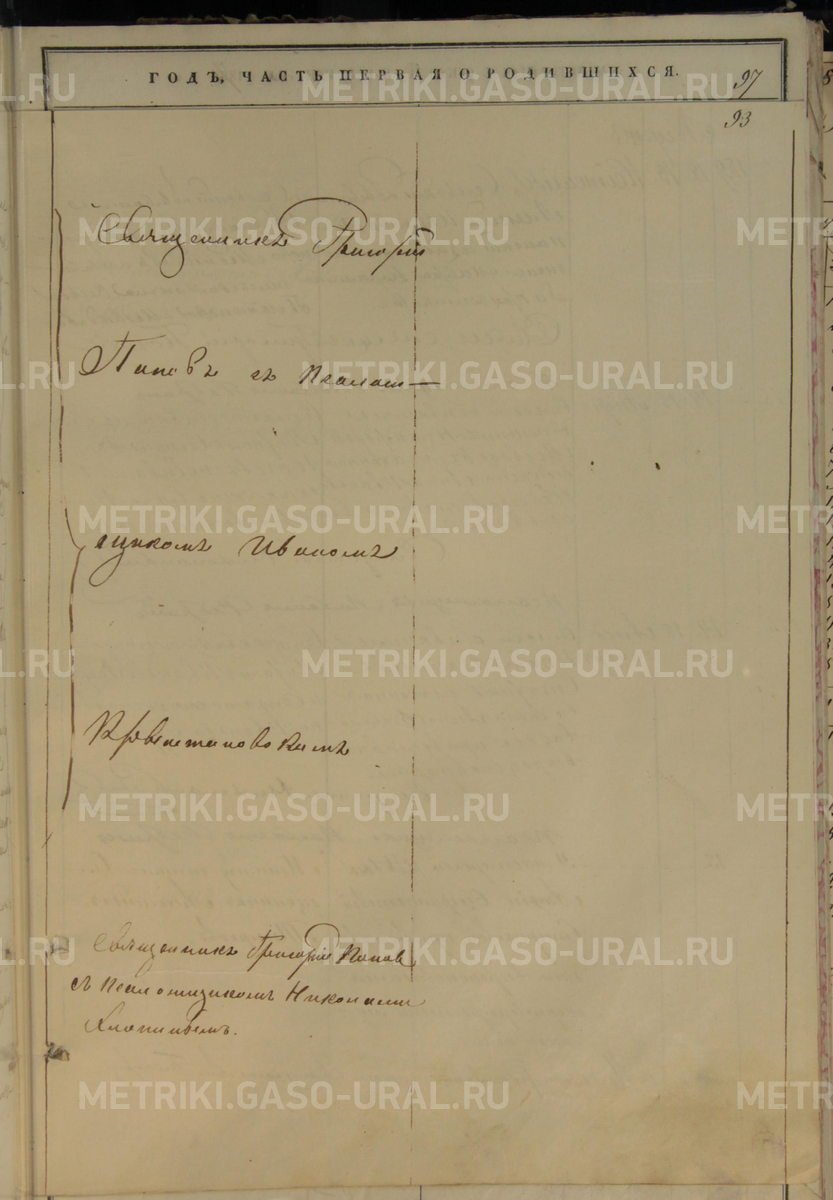 ГОДЪ, ЧАСТЬ ПЕРВАЯ О РОДИВШИХСЯ.
97
93
Священникъ Григорій
Поповъ съ псалом—
щикомъ Иваномъ
Священникъ Григорій Попов
съ псаломщикомъ Николаем
METRIKI.GASO-URAL.RU